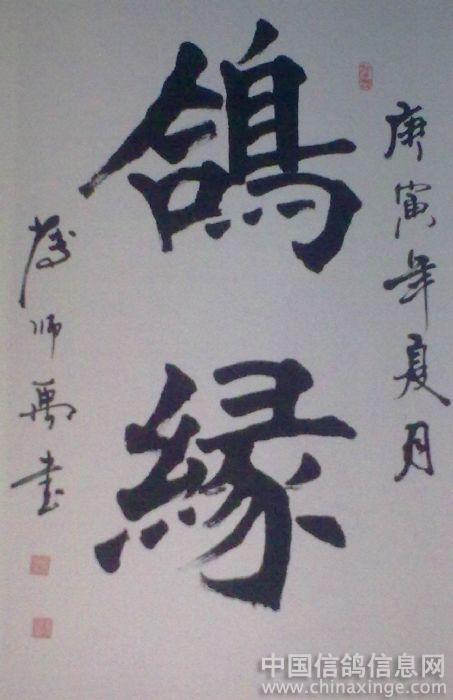 庚寅年夏月
鴿縁
师 書
中国信鸽信息网
www.chinaxinge.com